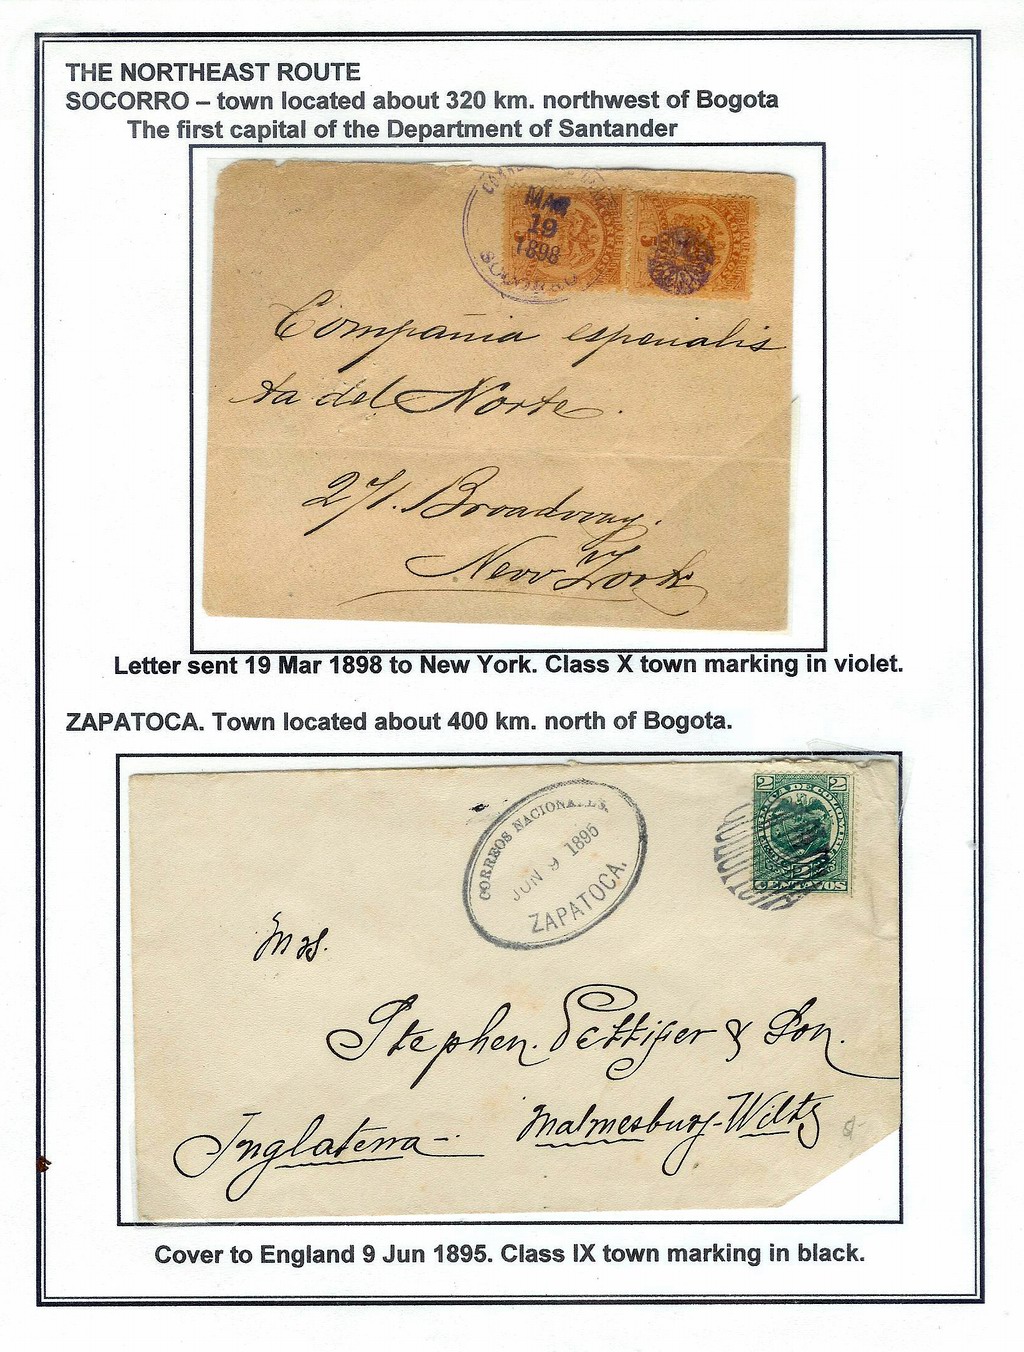 THE NORTHEAST ROUTE
SOCORRO – town located about 320 km. northwest of Bogota
The first capital of the Department of Santander
MAR
19
1898
SOCORRO
5
5
Compañia especialis
ta del Norte.
271. Broadway.
New York
Letter sent 19 Mar 1898 to New York. Class X town marking in violet.
ZAPATOCA. Town located about 400 km. north of Bogota.
2 2
CORREOS NACIONALES.
JUN 9 1895
ZAPATOCA.
CENTAVOS
Mrs.
Stephen. Pettifer & Son.
Inglaterra-. Malmesbury-Wilts
Cover to England 9 Jun 1895. Class IX town marking in black.